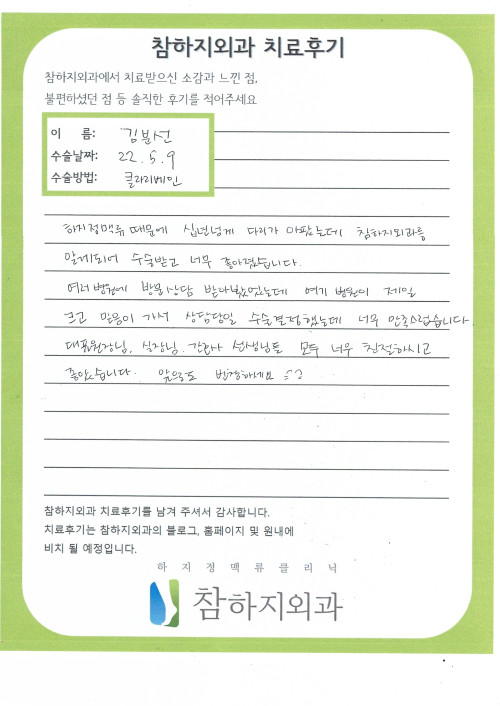 참하지외과 치료후기
참하지외과에서 치료받으신 소감과 느낀 점,
불편하셨던 점 등 솔직한 후기를 적어주세요
이 름: 김분선
수술날짜: 22. 5. 9
수술방법: 클라리베인
하지정맥류 때문에 십년넘게 다리가 아팠는데 참하지외과를
알게되어 수술받고 너무 좋아졌습니다.
여러병원에 방문상담 받아봤었는데 여기 병원이 제일
크고 믿음이 가서 상담당일 수술결정했는데 너무 만족스럽습니다
대표원장님, 실장님, 간호사 선생님들 모두 너무 친절하시고
좋았습니다. 앞으로도 번창하세요 ^^
참하지외과 치료후기를 남겨 주셔서 감사합니다.
치료후기는 참하지외과의 블로그, 홈페이지 및 원내에
비치 될 예정입니다.
하지정맥류클리닉
참하지외과